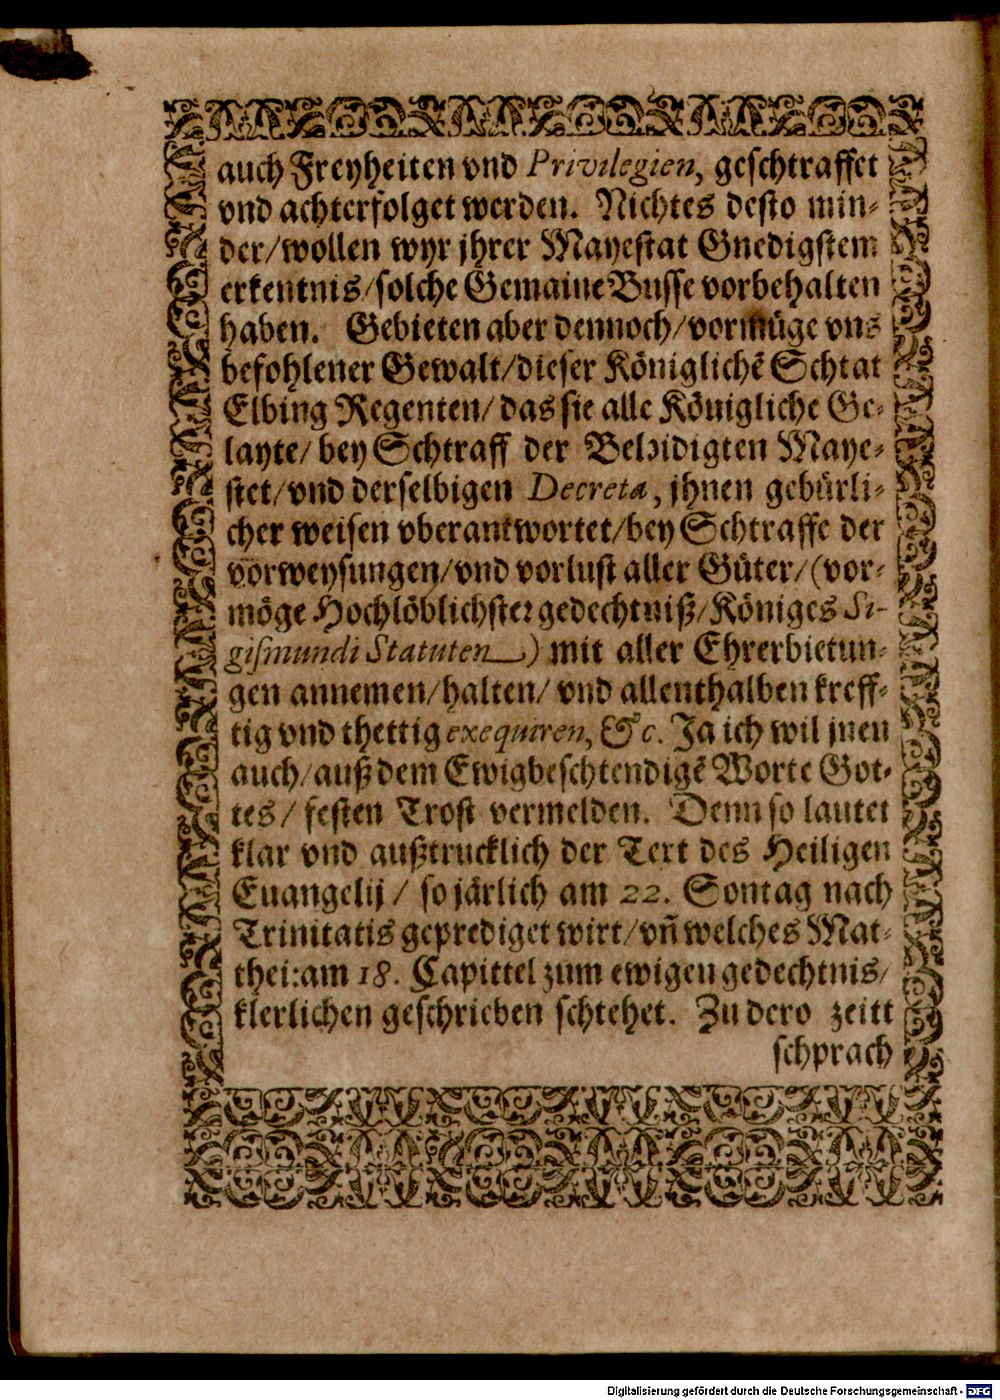 auch Freyheiten vnd Privilegien, geschtraffet
vnd achterfolget werden. Nichtes desto min-
der/wollen wyr jhrer Mayestat Gnedigstem
erkentnis/solche Gemaine Busse vorbehalten
haben. Gebieten aber dennoch/vormüge vns
befohlener Gewalt/dieser Königlichē Schtat
Elbing Regenten/das sie alle Königliche Ge-
layte/bey Schtraff der Beleidigten Maye-
stet/vnd derselbigen Decreta, jhnen gebürli-
cher weisen vberantwortet/bey Schtraffe der
vorweysungen/vnd vorlust aller Güter/(vor-
möge Hochlöblichster gedechtniß/Königes Si-
gismundi Statuten) mit aller Ehrerbietun-
gen annemen/halten/vnd allenthalben kreff-
tig vnd thettig exequiren, &c. Ja ich wil jnen
auch/auß dem Ewigbeschtendigē Worte Got-
tes/festen Trost vermelden. Denn so lautet
klar vnd außtrucklich der Text des Heiligen
Euangelij/so järlich am 22. Sontag nach
Trinitatis geprediget wirt/vñ welches Mat-
thei:am 18. Capittel zum ewigen gedechtnis/
klerlichen geschrieben schtehet. Zu dero zeitt
schprach
Digitalisierung gefördert durch die Deutsche Forschungsgemeinschaft - DFG